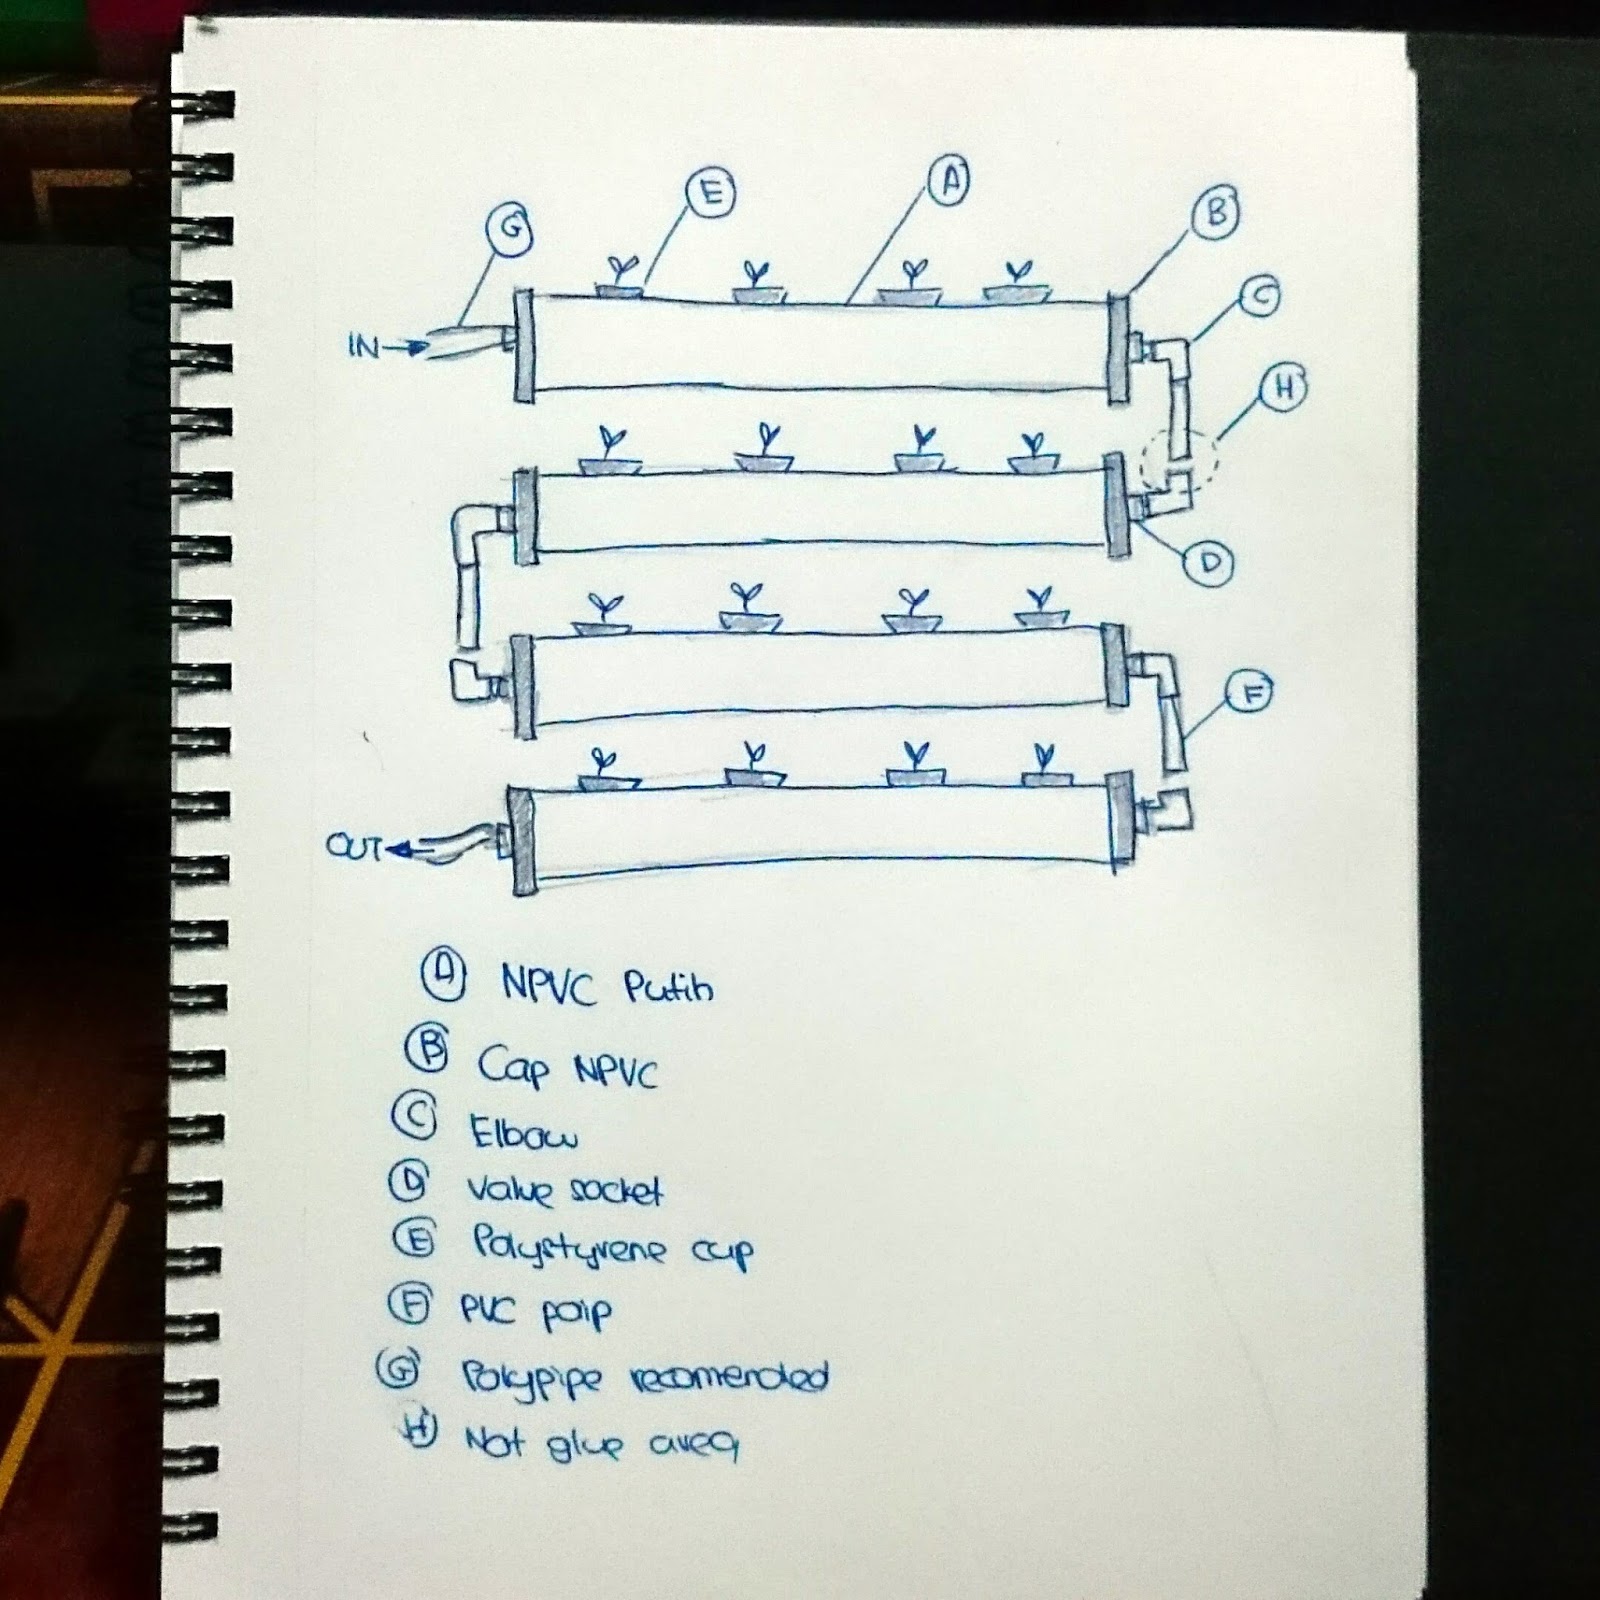 G
E
A
B
C
H
IN
D
F
OUT
A NPVC Putih
B Cap NPVC
C Elbow
D Valve socket
E Polystyrene cup
F PVC paip
G Polypipe recomended
H Not glue area